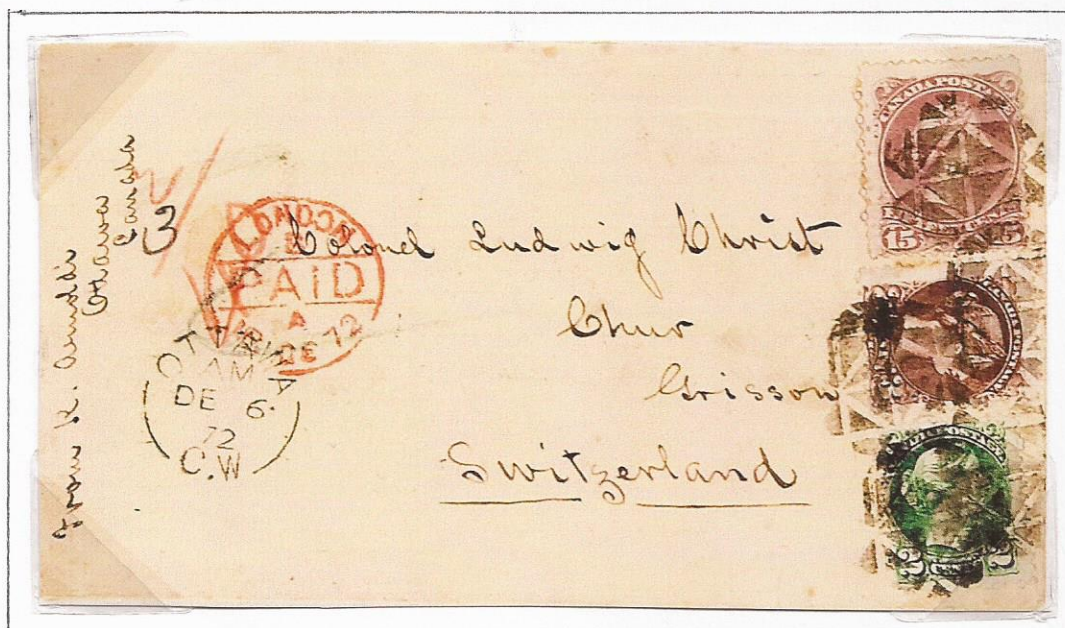 From
Ottawa
Canada
3
LONDON
PAID
A
DE 72
OTTAWA
AM
DE 6
72
C.W
Colonel Ludwig Christ
Chur
Grisson
Switzerland
CANADA POSTAGE
15 15
CANADA POSTAGE
2 CENTS 2